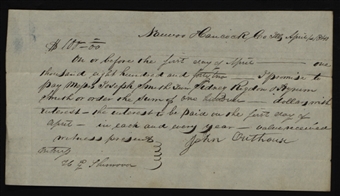 Nauvoo Hancock Co Ills April 1st 1840
$ 100-00
On or before the first day of April one
thousand eight hundred and forty two I promise to
pay Messrs Joseph Smith Jun Sidney Rigdon & Hyrum
Smith or order the sum of one hundred dollars with
interest the interest to be paid on the first day of
April in each and every year value received
witness present
John Outhouse